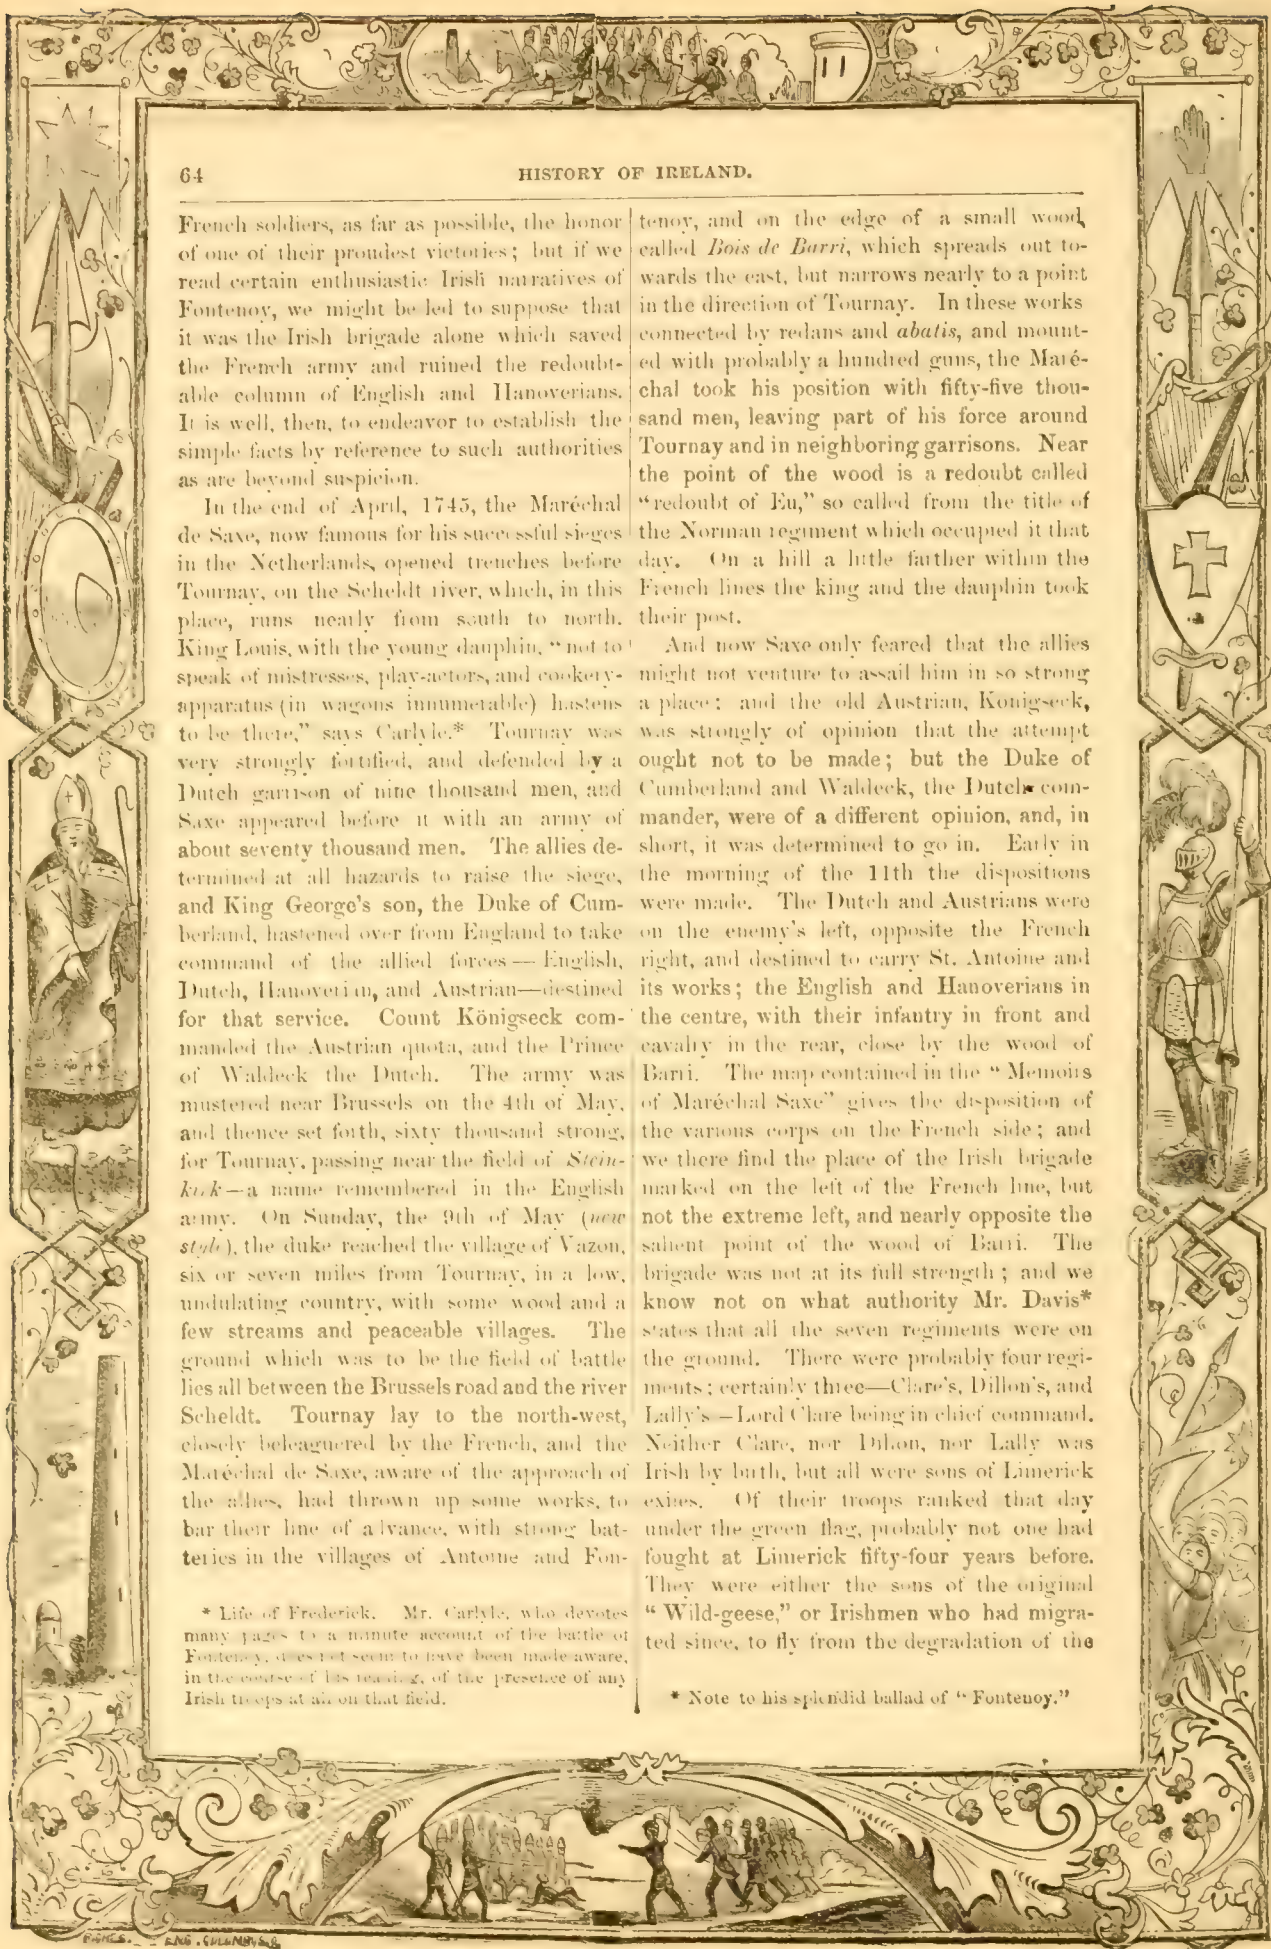 64
HISTORY OF IRELAND.
French soldiers, as far as possible, the honor
of one of their proudest victories; but if we
read certain enthusiastic Irish narratives of
Fontenoy, we might be led to suppose that
it was the Irish brigade alone which saved
the French army and ruined the redoubt-
able column of English and Hanoverians.
It is well, then, to endeavor to establish the
simple facts by reference to such authorities
as are beyond suspicion.
In the end of April, 1745, the Maréchal
de Saxe, now famous for his successful sieges
in the Netherlands, opened trenches before
Tournay, on the Scheldt river, which, in this
place, runs nearly from south to north.
King Louis, with the young dauphin, "not to
speak of mistresses, play-actors, and cookery-
apparatus (in wagons innumerable) hastens
to be there," says Carlyle.* Tournay was
very strongly fortified, and defended by a
Dutch garrison of nine thousand men, and
Saxe appeared before it with an army of
about seventy thousand men. The allies de-
termined at all hazards to raise the siege,
and King George's son, the Duke of Cum-
berland, hastened over from England to take
command of the allied forces — English,
Dutch, Hanoverian, and Austrian—destined
for that service. Count Königseck com-
manded the Austrian quota, and the Prince
of Waldeck the Dutch. The army was
mustered near Brussels on the 4th of May,
and thence set forth, sixty thousand strong,
for Tournay, passing near the field of Stein-
kirk—a name remembered in the English
army. On Sunday, the 9th of May (new
style), the duke reached the village of Vazon,
six or seven miles from Tournay, in a low,
undulating country, with some wood and a
few streams and peaceable villages. The
ground which was to be the field of battle
lies all between the Brussels road and the river
Scheldt. Tournay lay to the north-west,
closely beleaguered by the French, and the
Maréchal de Saxe, aware of the approach of
the allies, had thrown up some works, to
bar their line of advance, with strong bat-
teries in the villages of Antoine and Fon-
* Life of Frederick. Mr. Carlyle, who devotes
many pages to a minute account of the battle of
Fontenoy, does not seem to have been made aware,
in the course of his reading, of the presence of any
Irish troops at all on that field.
tenoy, and on the edge of a small wood,
called Bois de Barri, which spreads out to-
wards the east, but narrows nearly to a point
in the direction of Tournay. In these works
connected by redans and abatis, and mount-
ed with probably a hundred guns, the Maré-
chal took his position with fifty-five thou-
sand men, leaving part of his force around
Tournay and in neighboring garrisons. Near
the point of the wood is a redoubt called
"redoubt of Eu," so called from the title of
the Norman regiment which occupied it that
day. On a hill a little farther within the
French lines the king and the dauphin took
their post.
And now Saxe only feared that the allies
might not venture to assail him in so strong
a place; and the old Austrian, Konigseck,
was strongly of opinion that the attempt
ought not to be made; but the Duke of
Cumberland and Waldeck, the Dutch com-
mander, were of a different opinion, and, in
short, it was determined to go in. Early in
the morning of the 11th the dispositions
were made. The Dutch and Austrians were
on the enemy's left, opposite the French
right, and destined to carry St. Antoine and
its works; the English and Hanoverians in
the centre, with their infantry in front and
cavalry in the rear, close by the wood of
Barri. The map contained in the "Memoirs
of Maréchal Saxe" gives the disposition of
the various corps on the French side; and
we there find the place of the Irish brigade
marked on the left of the French line, but
not the extreme left, and nearly opposite the
salient point of the wood of Barri. The
brigade was not at its full strength; and we
know not on what authority Mr. Davis*
states that all the seven regiments were on
the ground. There were probably four regi-
ments; certainly three—Clare's, Dillon's, and
Lally's—Lord Clare being in chief command.
Neither Clare, nor Dillon, nor Lally was
Irish by birth, but all were sons of Limerick
exiles. Of their troops ranked that day
under the green flag, probably not one had
fought at Limerick fifty-four years before.
They were either the sons of the original
"Wild-geese," or Irishmen who had migra-
ted since, to fly from the degradation of the
* Note to his splendid ballad of "Fontenoy."